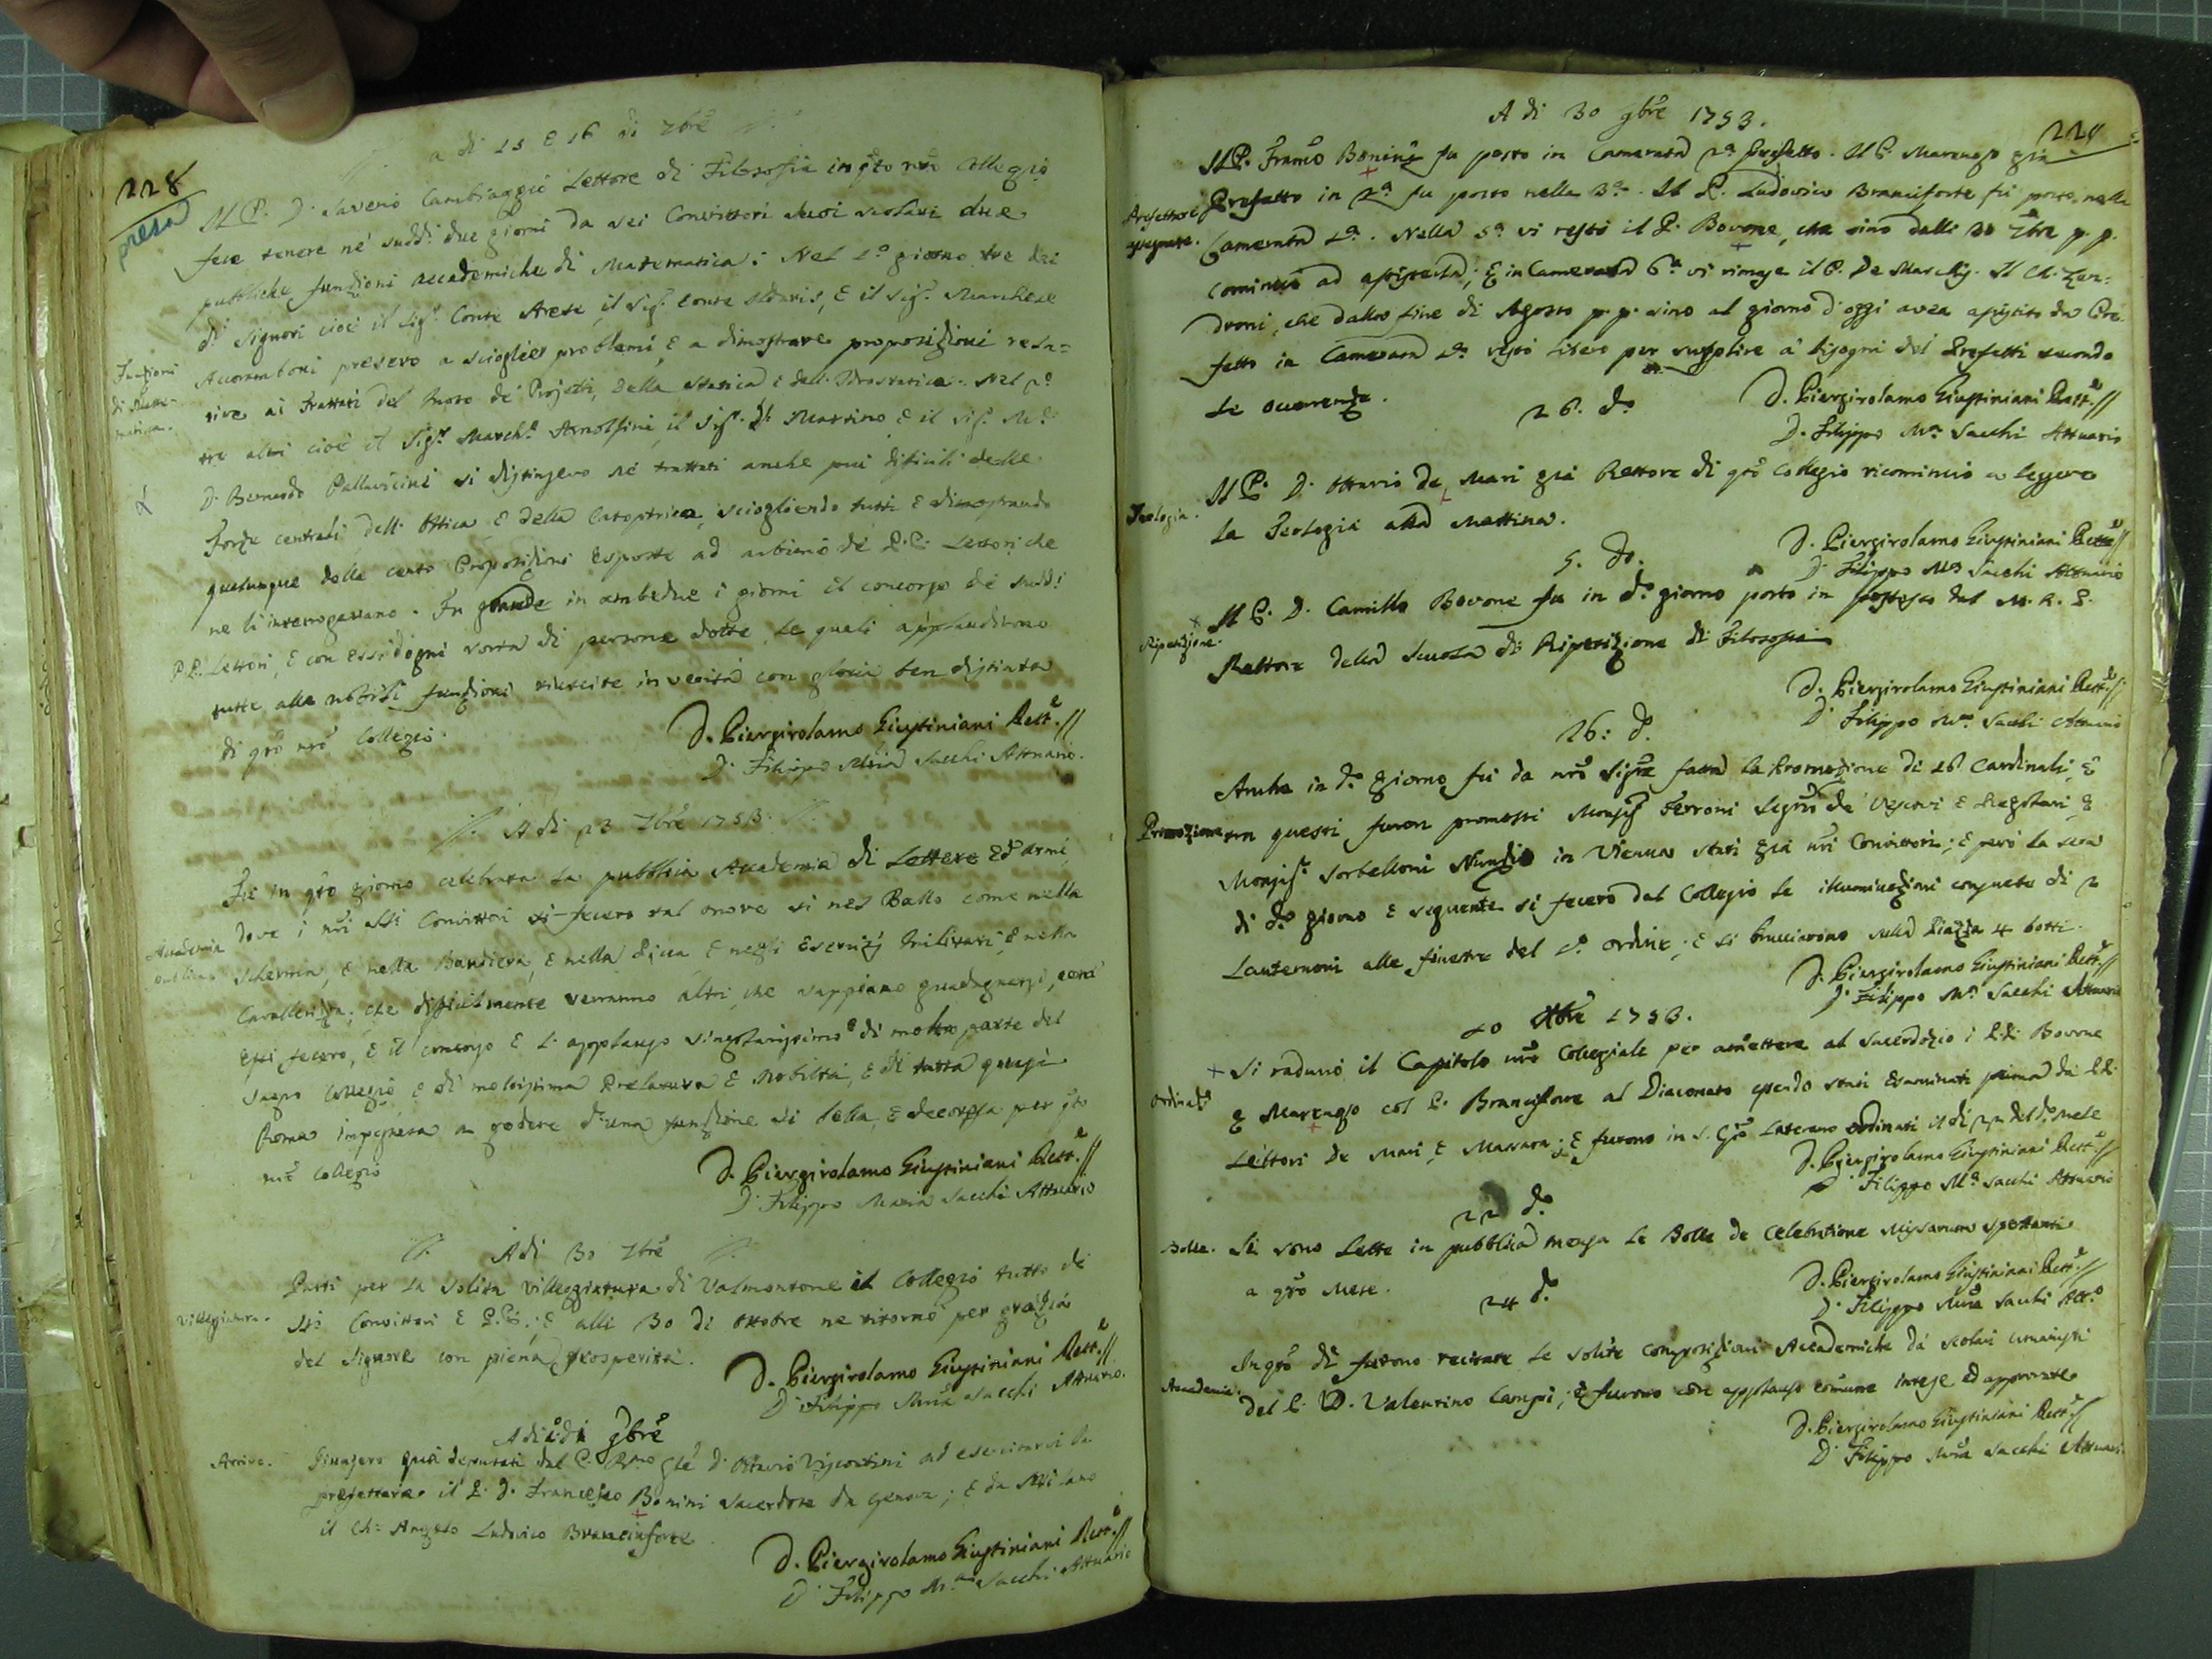 228
presa
a dì 15 E 16 di 7bre
Il P. D. Saverio Cambiaggio Lettore di Filosofia in qto nro Collegio
fece tenere ne' suddi due giorni da sei Convittori suoi scolari due
pubbliche funzioni accademiche di Matematica: Nel 1o giorno tre dei
di Signori cioè il Sigr Conte Arese, il Sigr Conte , E il Sigr Marchese
Accoramboni presero a sciogliere problemi, E a dimostrare proposizioni rela=
Funzioni
di Mate-
matica.
tive ai Trattati del Moto de' Projetti, della Statica e dell' Idrostatica. Nel 2o
tre altri cioè il Sigr March.e Arnolfini, il Sigr. Di Martino E il Sigr M.
D. Bernardo Pallavicini si distinsero ne' trattati anche più difficili delle
forze centrali dell' Ottica E della Catoptrica, sciogliendo tutti E dimostrando
qualunque delle cento Proposizioni Esposte ad arbitrio de' P.P. Lettori che
ne li interrogavano. Fu grande in ambedue i giorni il concorso de' suddi
P.P. Lettori, E con essi d'ogni sorta di persone dotte, le quali applaudirono
tutte alle nobili funzioni riuscite in verità con gloria ben distinta
di qto nro Collegio.
D. Piergirolamo Giustiniani Rett.e
D. Filippo Maria Sacchi Attuario.
A dì 23 7bre 1753.
Fu in qto giorno celebrata la pubblica Accademia di Lettere Ed armi,
dove i nri SSi Convittori si fecero tal onore sì nel Ballo come nella
Accademia
pubblica
scherma, E nella Bandiera, E nella Picca E negli Esercizj Militari, E nella
Cavallerizza, che difficilmente verranno altri che sappiano guadagnarsi, come
Essi fecero, E il concorso E l'applauso singolarissimo di molta parte del
Sagro Collegio, e di moltissima Prelatura E Nobiltà, E di tutta quasi
Roma impegnata a godere d'una funzione sì bella, E decorosa per qto
nro Collegio
D. Piergirolamo Giustiniani Rett.e
D. Filippo Maria Sacchi Attuario
A dì 30 7bre
Partì per la solita villeggiatura di Valmontone il Collegio tutto de'
Villeggiatura.
SSi Convittori E P.P.; E alli 30 di Ottobre ne ritornò per grazia
del Signore con piena prosperità.
D. Piergirolamo Giustiniani Rett.e
D. Filippo Mria Sacchi Attuario.
A dì di 9bre
Arrivo.
Giunsero quà deputati dal P. Rmo Gle D. Ottavio Visconti ad esercitarvi la
prefettura il P. D. Francesco Bonini Sacerdote da Genova; E da Milano
il Ch. Angelo Ludovico Branciforte
D. Piergirolamo Giustiniani Rett.e
D. Filippo M.a Sacchi Attuario
A dì 30 9bre 1753.
Il P. Franco Bonini fu posto in Camerata 2a Prefetto. Il P. Marenzo già
Prefetture
assegnate.
Prefetto in 2a fu posto nella 3a. Il P. Ludovico Branciforte fu posto nella
Camerata 1a. Nella 5a vi restò il P. Bovone, che sino dalli 30 7bre p.p.
cominciò ad assisterla; E in Camerata 6a vi rimase il P. De . Il Ch. Zen-
droni, che dalla fine di Agosto p.p. sino al giorno d'oggi avea assistito da Pre-
fetto in Camerata restò libero per supplire a' bisogni dei Prefetti secondo
le occorenze.
D. Piergirolamo Giustiniani Rett.e
D. Filippo M.a Sacchi Attuario
26. do
Teologia.
Il P. D. Ottavio De Mari già Rettore di qto Collegio ricominciò a leggere
la Teologia alla mattina.
D. Piergirolamo Giustiniani Rett.e
D. Filippo Ma Sacchi Attuario
5. do.
Ripetizione.
Il P. D. Camillo Bovone fu in do giorno posto in possesso dal M. R. P.
Rettore della Scuola di Ripetizione di Filosofia
D. Piergirolamo Giustiniani Rett.e
D. Filippo Ma Sacchi Attuario
26: do.
Anche in do giorno fu da nro Sigre fatta la Promozione di 16 Cardinali, E
Promozione
tra questi furon promossi Monsigr Ferroni Segrio de' Vescovi E Regolari, E
Monsigr Sorbelloni Nunzio in Vienna stati già nri Convittori; E però la sera
di do giorno E seguente si fecero dal Collegio le illuminazioni consuete di 2
Lanternoni alle finestre del 1o ordine; E si bruciarono nella Piazza 4 botti.
D. Piergirolamo Giustiniani Rett.e
D. Filippo M.a Sacchi Attuario
10 Xbre 1753.
Ordinati
Si radunò il Capitolo nro Collegiale per ammettere al Sacerdozio i P.P. Bovone
E Marenzo col P. Branciforte al Diaconato essendo stati Esaminati prima da' P.P.
Lettori De Mari, E Massara; E furono in S. Gio Laterano ordinati il dì 22 del do mese
D. Piergirolamo Giustiniani Rett.e
D. Filippo M.a Sacchi Attuario
22 do
Bolle.
Si sono lette in pubblica mensa le Bolle de celebratione Missarum spettanti
a qto Mese.
D. Piergirolamo Giustiniani Rett.e
D. Filippo Mria Sacchi Att.o
24 do
Accademia.
In qto dì furono recitate le solite composizioni Accademiche da' scolari Umanisti
del P. D. Valentino Campi, E furono con applauso comune intese Ed approvate
D. Piergirolamo Giustiniani Rett.e
D. Filippo Mria Sacchi Attuario